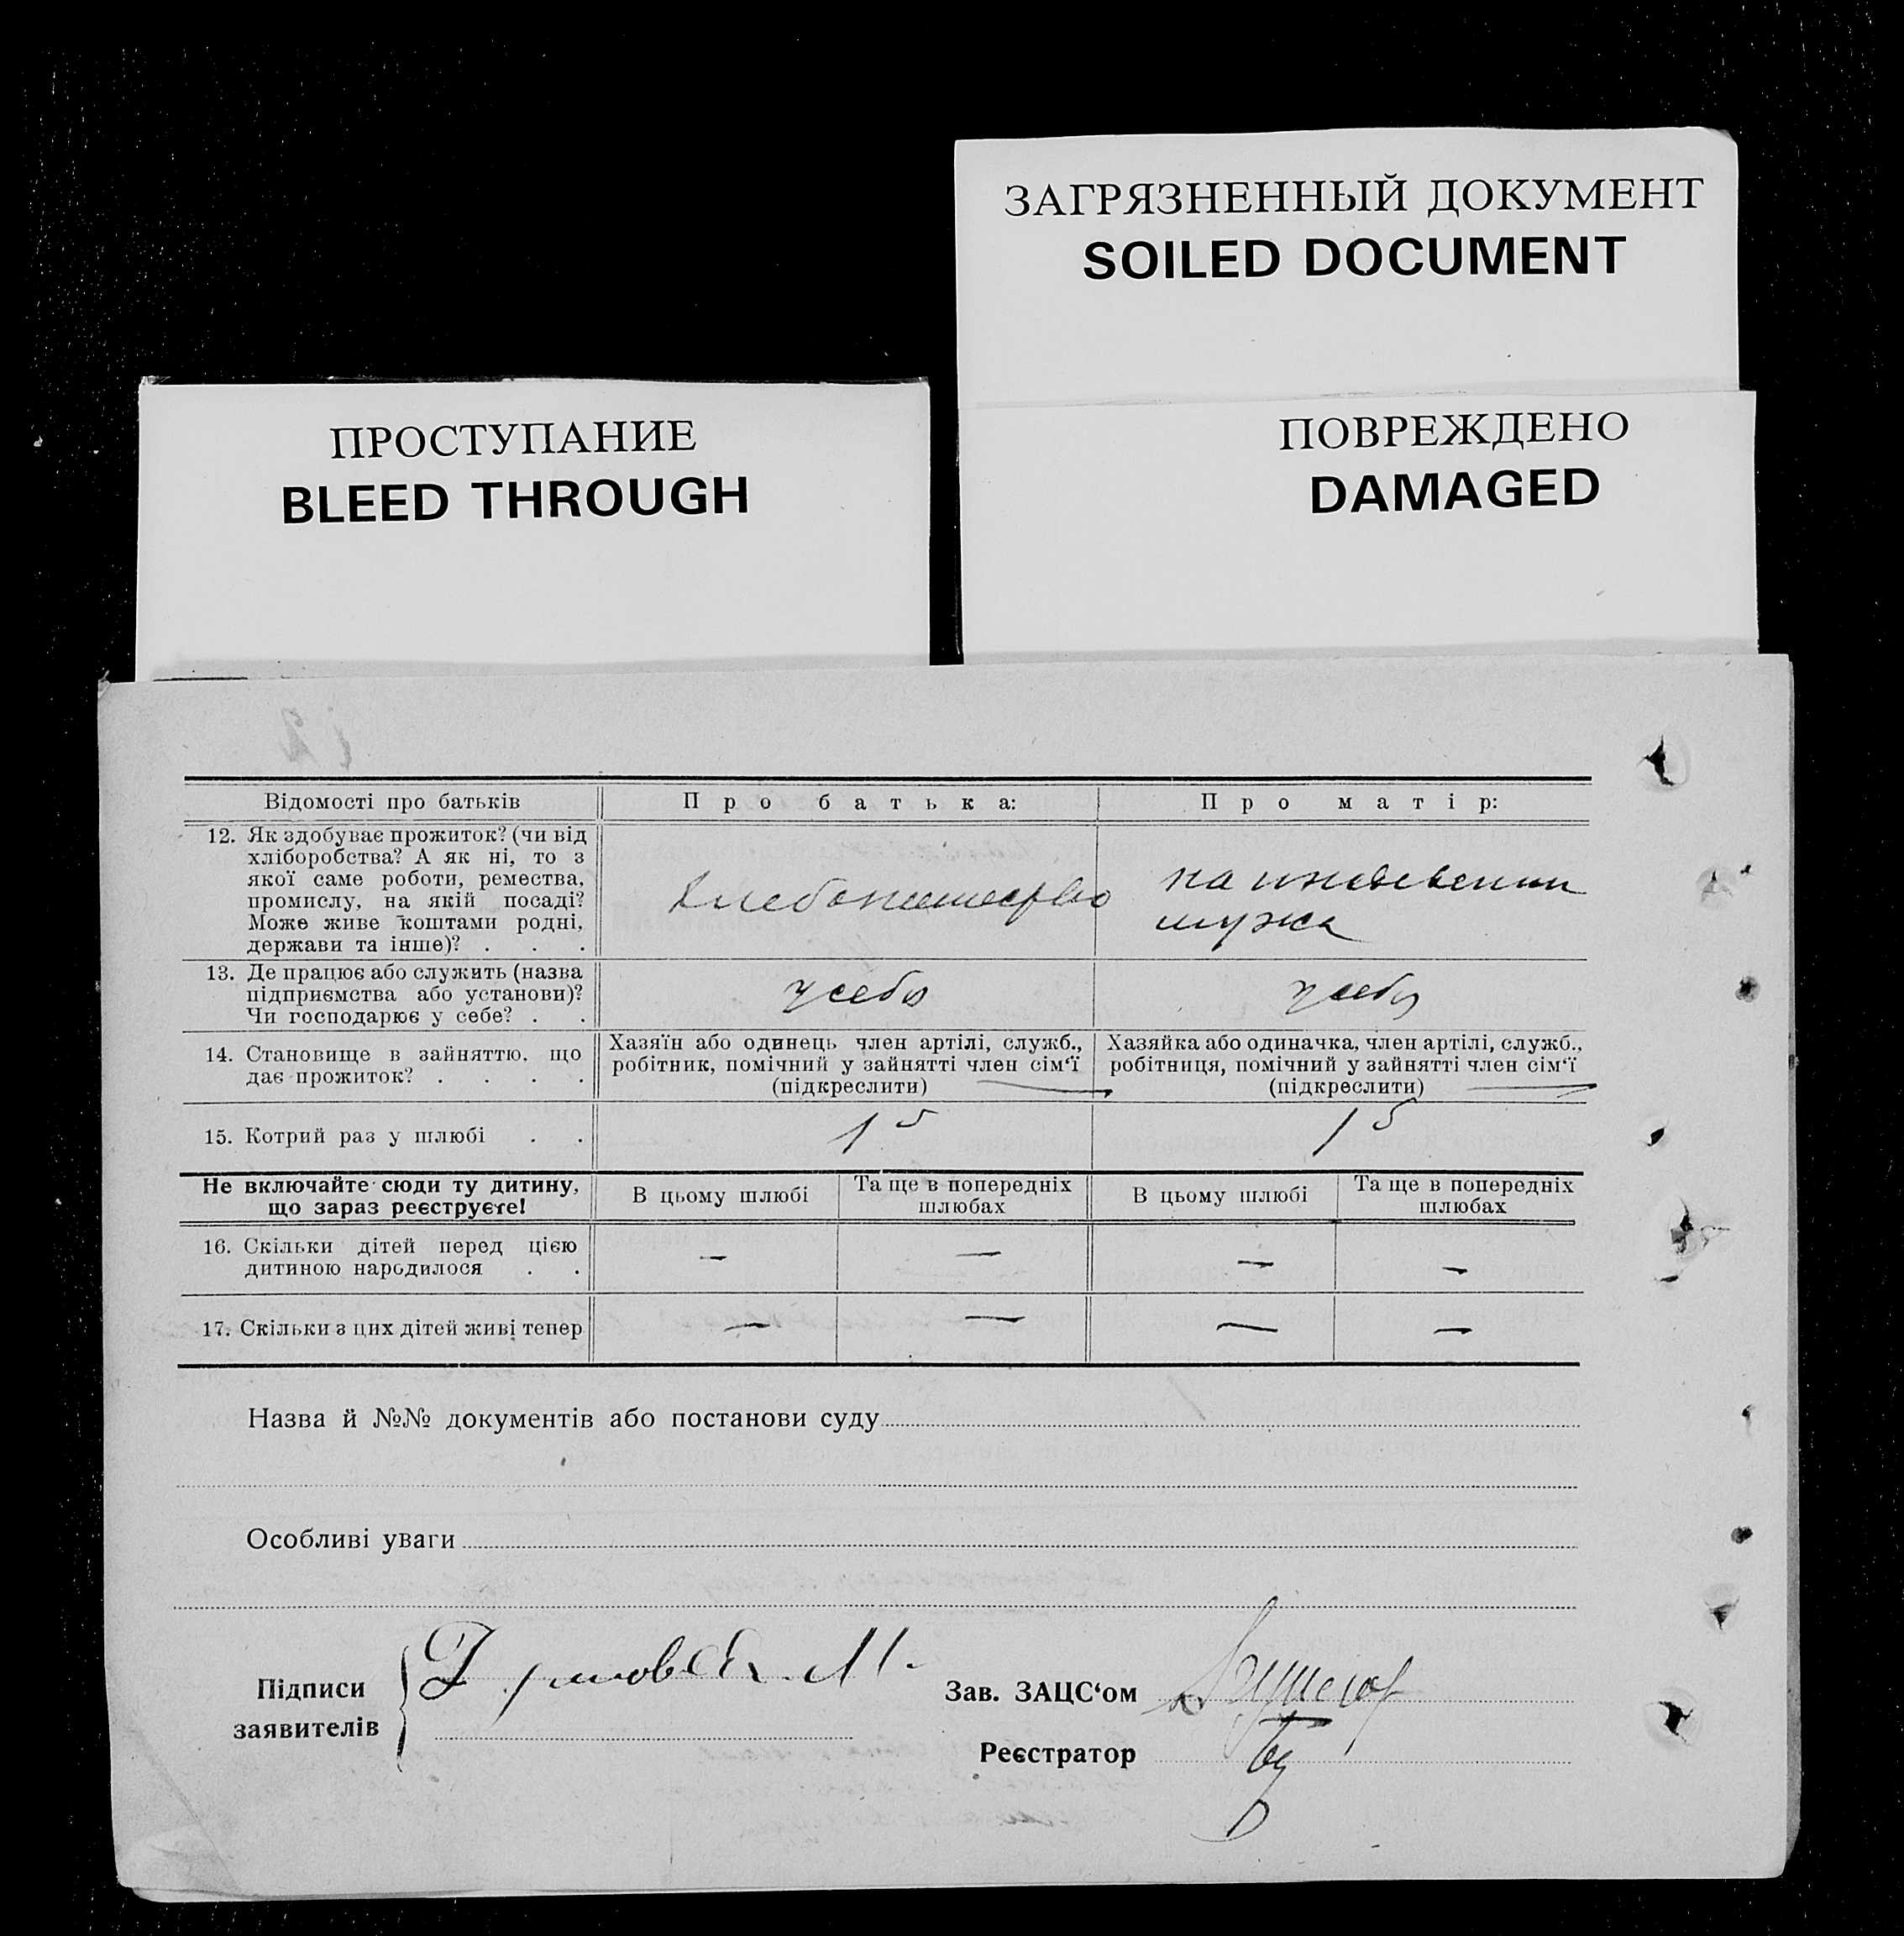 ЗАГРЯЗНЕННЫЙ ДОКУМЕНТ
SOILED DOCUMENT
ПРОСТУПАНИЕ
BLEED THROUGH
ПОВРЕЖДЕНО
DAMAGED
Відомості про батьків
Про батька:
Про матір:
12. Як здобуває прожиток? (чи від
хліборобства? А як ні, то з
якої саме роботи, ремества,
промислу, на якій посаді?
Може живе коштами родні,
держави та інше)? . . .
Хлебопашество
на иждевении
мужа
13. Де працює або служить (назва
підприємства або установи)?
Чи господарює у себе? . .
у себя
у себя
14. Становище в зайняттю, що
дає прожиток? . . . .
Хазяїн або одинець член артілі, служб.,
робітник, помічний у зайнятті член сім‘ї
(підкреслити)
Хазяйка або одиначка, член артілі, служб.,
робітниця, помічний у зайнятті член сім‘ї
(підкреслити)
15. Котрий раз у шлюбі . .
1
1
Не включайте сюди ту дитину,
що зараз реєструєте!
В цьому шлюбі
Та ще в попередніх
шлюбах
В цьому шлюбі
Та ще в попередніх
шлюбах
16. Скільки дітей перед цією
дитиною народилося . .
— — — —
17. Скільки з цих дітей живі тепер
— — — —
Назва й №№ документів або постанови суду
Особливі уваги
Підписи
заявителів
М.
Зав. ЗАЦС‘ом
Реєстратор